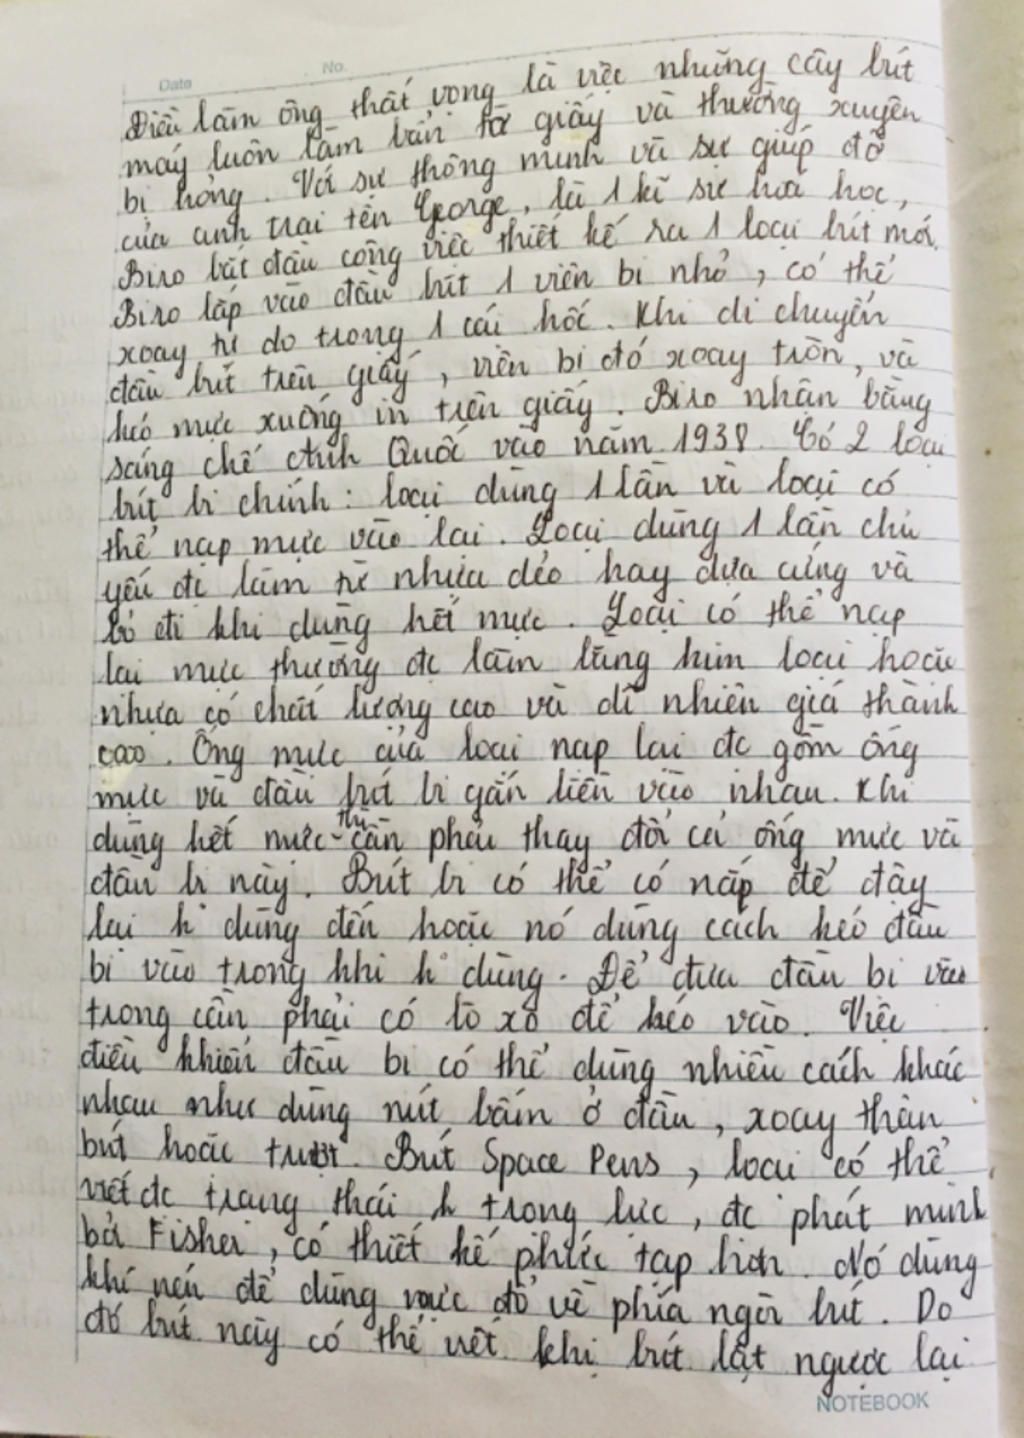 Date No.
Điều làm ông thất vọng là việc những cây bút
máy luôn làm bẩn tờ giấy và thường xuyên
bị hỏng. Với sự thông minh và sự giúp đỡ
của anh trai tên George, là 1 kĩ sư hoá học,
Biro bắt đầu công việc thiết kế ra 1 loại bút mới.
Biro lắp vào đầu bút 1 viên bi nhỏ, có thể
xoay tự do trong 1 cái hốc. Khi di chuyển
đầu bút trên giấy, viên bi đó xoay tròn, và
kéo mực xuống in trên giấy. Biro nhận bằng
sáng chế Anh Quốc vào năm 1938. Có 2 loại
bút bi chính: loại dùng 1 lần và loại có
thể nạp mực vào lại. Loại dùng 1 lần chủ
yếu đc làm từ nhựa dẻo hay dựa cứng và
bỏ đi khi dùng hết mực. Loại có thể nạp
lại mực thường đc làm bằng kim loại hoặc
nhựa có chất lượng cao và dĩ nhiên giá thành
cao. Ống mực của loại nạp lại đc gồm ống
mực và đầu bút bi gắn liền vào nhau. Khi
dùng hết mực thì cần phải thay đổi cả ống mực và
đầu bi này. Bút bi có thể có nắp để đậy
lại k dùng đến hoặc nó dùng cách kéo đầu
bi vào trong khi k dùng. Để đưa đầu bi vào
trong cần phải có lò xo để kéo vào. Việc
điều khiển đầu bi có thể dùng nhiều cách khác
nhau như dùng nút bấm ở đầu, xoay thân
bút hoặc trượt. Bút Space Pens, loại có thể
viết đc trạng thái k trọng lực, đc phát minh
bởi Fisher, có thiết kế phức tạp hơn. Nó dùng
khí nén để dùng mực đổ về phía ngòi bút. Do
đó bút này có thể viết khi bút lật ngược lại
NOTEBOOK